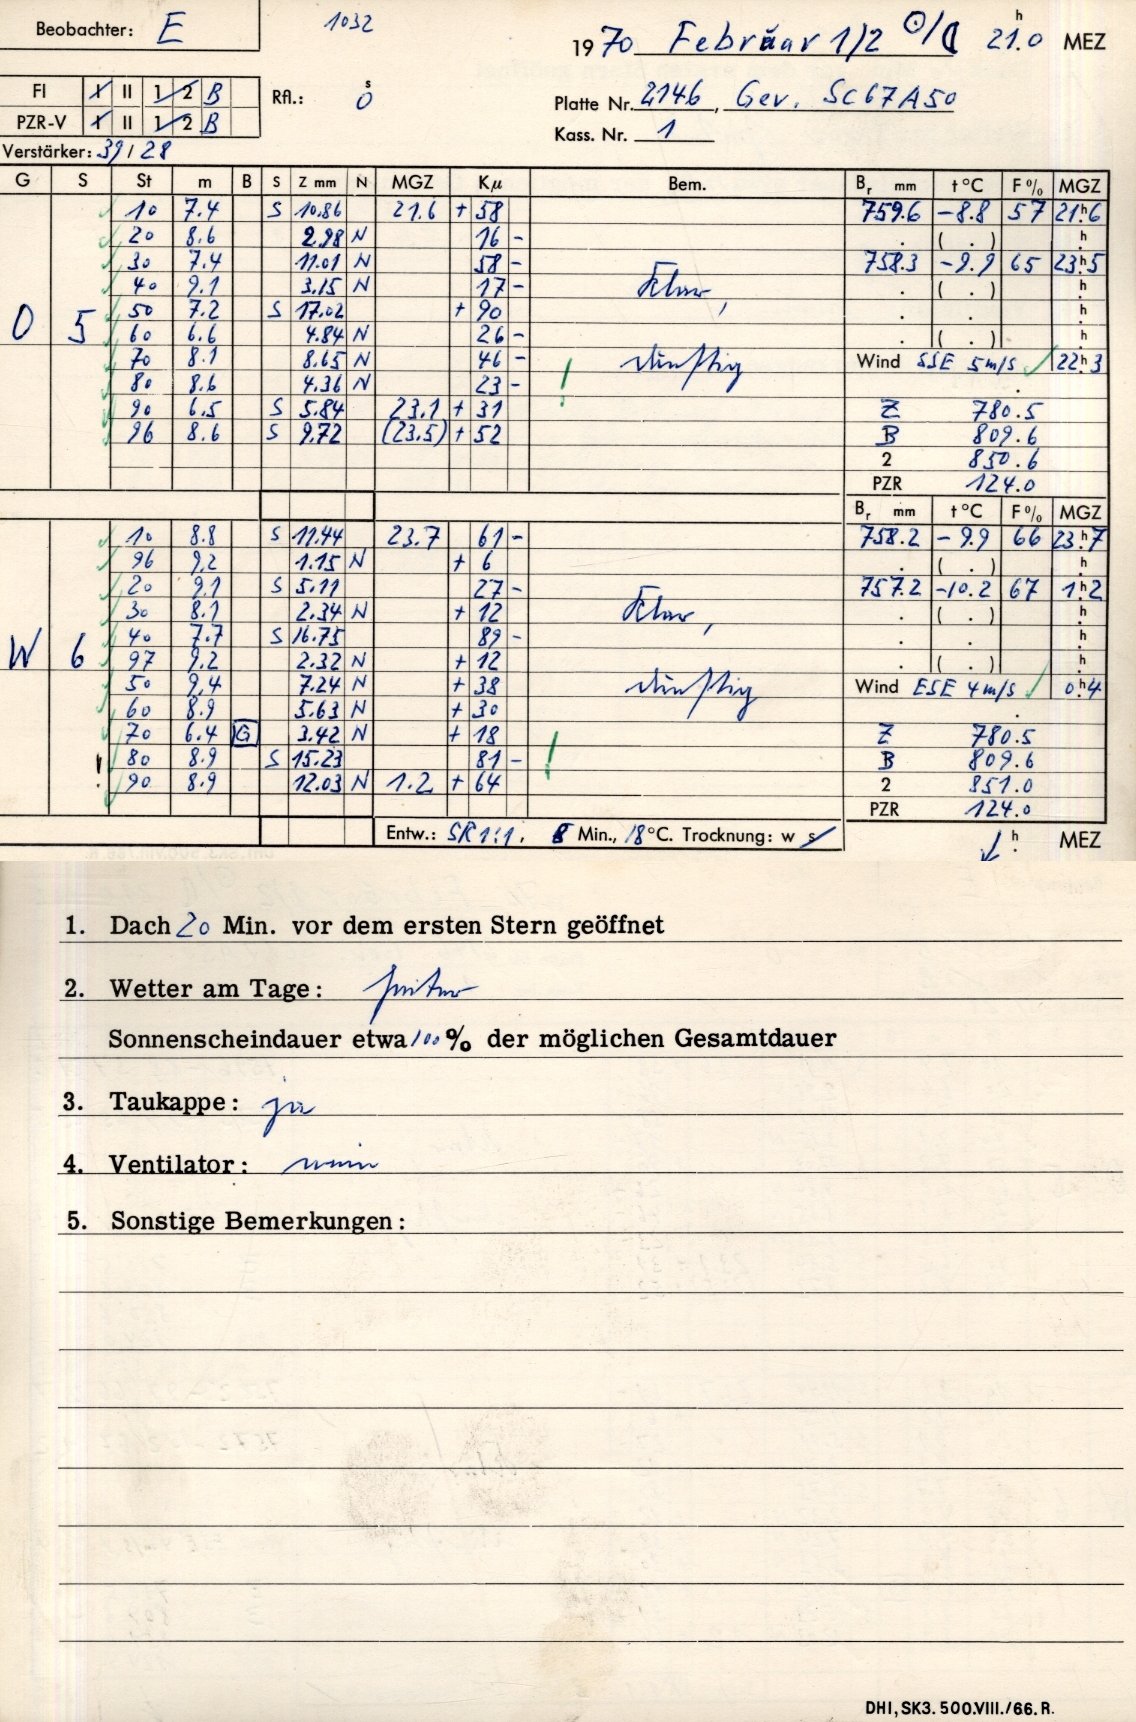 Beobachter: E 1032 1970 Februar 1/2 ☉/☾ 21.0 h MEZ
FI I II 1 2 B Rfl.: 0 s Platte Nr. 2146, Gev. Sc67A50
PZR-V I II 1 2 B Kass. Nr. 1
Verstärker: 39/28
G S St m B S Z mm N MGZ Kµ Bem. Br mm t °C F % MGZ
10 7.4 S 10.86 21.6 + 58 759.6 -8.8 57 21h6
20 8.6 2.98 N 16 - . ( . ) h
30 7.4 11.01 N 58 - 758.3 -9.9 65 23h5
40 9.1 3.15 N 17 - klar, . ( . ) h
O 5 50 7.2 S 17.02 + 90 . . h
60 6.6 4.84 N 26 - . ( . ) h
70 8.1 8.65 N 46 - dunstig Wind SSE 5m/s ✓ 22h3
80 8.6 4.36 N 23 - !
90 6.5 S 5.84 23.1 + 31 Z 780.5
96 8.6 S 9.72 (23.5) + 52 B 809.6
2 850.6
PZR 124.0
Br mm t °C F % MGZ
10 8.8 S 11.44 23.7 61 - 758.2 -9.9 66 23h7
96 9.2 1.15 N + 6 . ( . ) h
20 9.1 S 5.11 27 - 757.2 -10.2 67 1h2
30 8.1 2.34 N + 12 klar, . ( . ) h
40 7.7 S 16.75 89 - . . h
W 6 97 9.2 2.32 N + 12 . ( . ) h
50 9.4 7.24 N + 38 dunstig Wind ESE 4m/s ✓ 0h4
60 8.9 5.63 N + 30
70 6.4 G 3.42 N + 18 Z 780.5
! 80 8.9 S 15.23 81 - ! B 809.6
90 8.9 12.03 N 1.2 + 64 2 851.0
PZR 124.0
Entw.: SR 1:1, 8 Min., 18°C. Trocknung: w s h MEZ
1. Dach 20 Min. vor dem ersten Stern geöffnet
2. Wetter am Tage: heiter
Sonnenscheindauer etwa 100% der möglichen Gesamtdauer
3. Taukappe: ja
4. Ventilator: nein
5. Sonstige Bemerkungen:
DHI, SK3. 500.VIII./66. R.